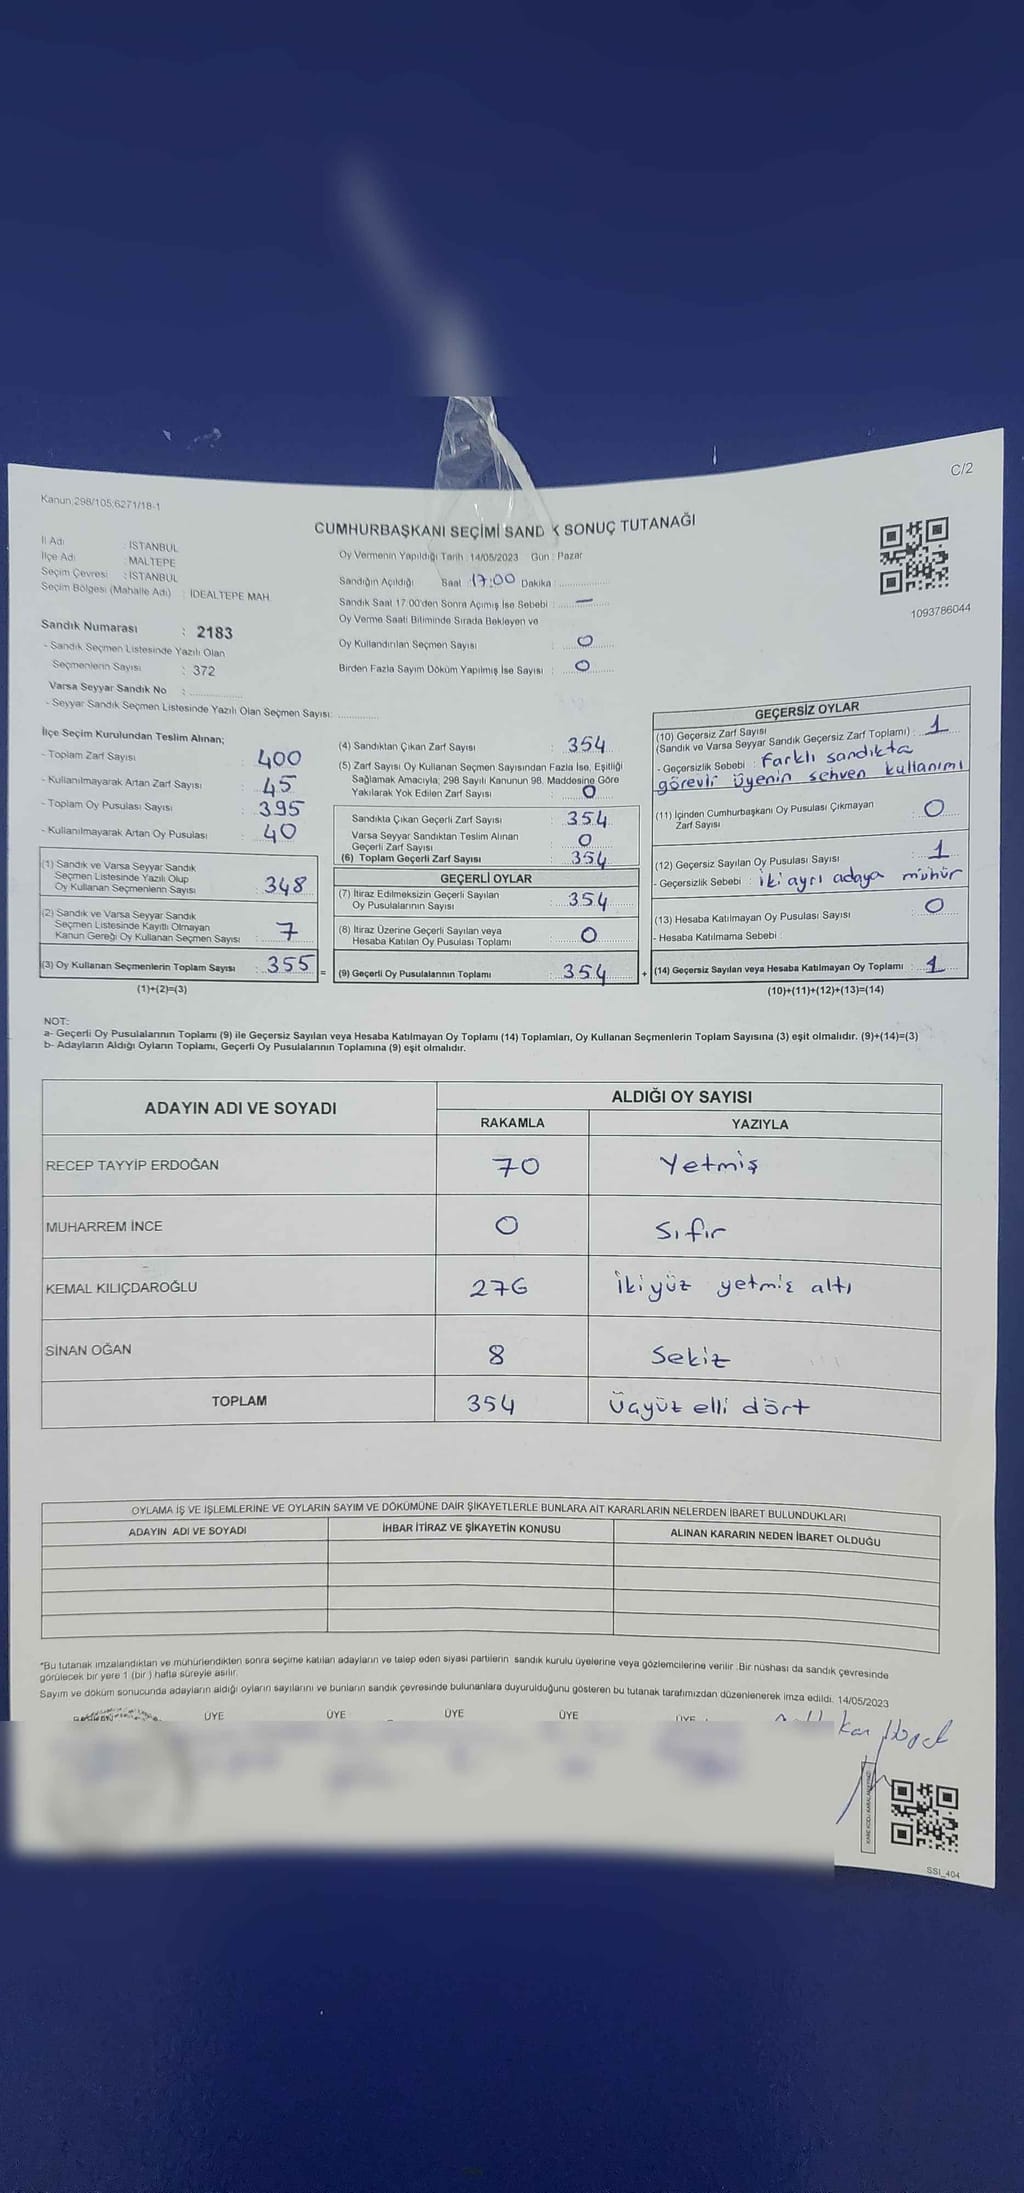 C/2
Kanun;298/105;6271/18-1
CUMHURBAŞKANI SEÇİMİ SANDIK SONUÇ TUTANAĞI
İl Adı : İSTANBUL
İlçe Adı : MALTEPE
Seçim Çevresi : İSTANBUL
Seçim Bölgesi (Mahalle Adı) : İDEALTEPE MAH.
Sandık Numarası : 2183
- Sandık Seçmen Listesinde Yazılı Olan
Seçmenlerin Sayısı : 372
Varsa Seyyar Sandık No : ..............
- Seyyar Sandık Seçmen Listesinde Yazılı Olan Seçmen Sayısı: ..............
Oy Vermenin Yapıldığı Tarih :14/05/2023 Gün : Pazar
Sandığın Açıldığı Saat :17:00 Dakika :..............
Sandık Saat 17:00'den Sonra Açımış İse Sebebi : —
Oy Verme Saati Bitiminde Sırada Bekleyen ve
Oy Kullandırılan Seçmen Sayısı : 0
Birden Fazla Sayım Döküm Yapılmış İse Sayısı : 0
1093786044
İlçe Seçim Kurulundan Teslim Alınan;
- Toplam Zarf Sayısı : 400
- Kullanılmayarak Artan Zarf Sayısı : 45
- Toplam Oy Pusulası Sayısı : 395
- Kullanılmayarak Artan Oy Pusulası : 40
(1) Sandık ve Varsa Seyyar Sandık
Seçmen Listesinde Yazılı Olup
Oy Kullanan Seçmenlerin Sayısı : 348
(2) Sandık ve Varsa Seyyar Sandık
Seçmen Listesinde Kayıtlı Olmayan
Kanun Gereği Oy Kullanan Seçmen Sayısı : 7
(3) Oy Kullanan Seçmenlerin Toplam Sayısı : 355 =
(1)+(2)=(3)
(4) Sandıktan Çıkan Zarf Sayısı : 354
(5) Zarf Sayısı Oy Kullanan Seçmen Sayısından Fazla İse, Eşitliği
Sağlamak Amacıyla, 298 Sayılı Kanunun 98. Maddesine Göre
Yakılarak Yok Edilen Zarf Sayısı : 0
Sandıkta Çıkan Geçerli Zarf Sayısı : 354
Varsa Seyyar Sandıktan Teslim Alınan
Geçerli Zarf Sayısı : 0
(6) Toplam Geçerli Zarf Sayısı : 354
GEÇERLİ OYLAR
(7) İtiraz Edilmeksizin Geçerli Sayılan
Oy Pusulalarının Sayısı : 354
(8) İtiraz Üzerine Geçerli Sayılan veya
Hesaba Katılan Oy Pusulası Toplamı : 0
(9) Geçerli Oy Pusulalarının Toplamı : 354 +
GEÇERSİZ OYLAR
(10) Geçersiz Zarf Sayısı
(Sandık ve Varsa Seyyar Sandık Geçersiz Zarf Toplamı) : 1
- Geçersizlik Sebebi : Farklı sandıkta
görevli üyenin sehven kullanımı
(11) İçinden Cumhurbaşkanı Oy Pusulası Çıkmayan
Zarf Sayısı : 0
(12) Geçersiz Sayılan Oy Pusulası Sayısı : 1
- Geçersizlik Sebebi : iki ayrı adaya mühür
(13) Hesaba Katılmayan Oy Pusulası Sayısı : 0
- Hesaba Katılmama Sebebi :
(14) Geçersiz Sayılan veya Hesaba Katılmayan Oy Toplamı : 1
(10)+(11)+(12)+(13)=(14)
NOT:
a- Geçerli Oy Pusulalarının Toplamı (9) ile Geçersiz Sayılan veya Hesaba Katılmayan Oy Toplamı (14) Toplamları, Oy Kullanan Seçmenlerin Toplam Sayısına (3) eşit olmalıdır. (9)+(14)=(3)
b- Adayların Aldığı Oyların Toplamı, Geçerli Oy Pusulalarının Toplamına (9) eşit olmalıdır.
ADAYIN ADI VE SOYADI ALDIĞI OY SAYISI
RAKAMLA YAZIYLA
RECEP TAYYİP ERDOĞAN 70 Yetmiş
MUHARREM İNCE 0 Sıfır
KEMAL KILIÇDAROĞLU 276 İkiyüz yetmiş altı
SİNAN OĞAN 8 Sekiz
TOPLAM 354 Üçyüz elli dört
OYLAMA İŞ VE İŞLEMLERİNE VE OYLARIN SAYIM VE DÖKÜMÜNE DAİR ŞİKAYETLERLE BUNLARA AİT KARARLARIN NELERDEN İBARET BULUNDUKLARI
ADAYIN ADI VE SOYADI İHBAR İTİRAZ VE ŞİKAYETİN KONUSU ALINAN KARARIN NEDEN İBARET OLDUĞU
*Bu tutanak imzalandıktan ve mühürlendikten sonra seçime katılan adayların ve talep eden siyasi partilerin sandık kurulu üyelerine veya gözlemcilerine verilir .Bir nüshası da sandık çevresinde
görülecek bir yere 1 (bir ) hafta süreyle asılır.
Sayım ve döküm sonucunda adayların aldığı oyların sayılarını ve bunların sandık çevresinde bulunanlara duyurulduğunu gösteren bu tutanak tarafımızdan düzenlenerek imza edildi. 14/05/2023
ÜYE ÜYE ÜYE ÜYE ÜYE
SSI_404